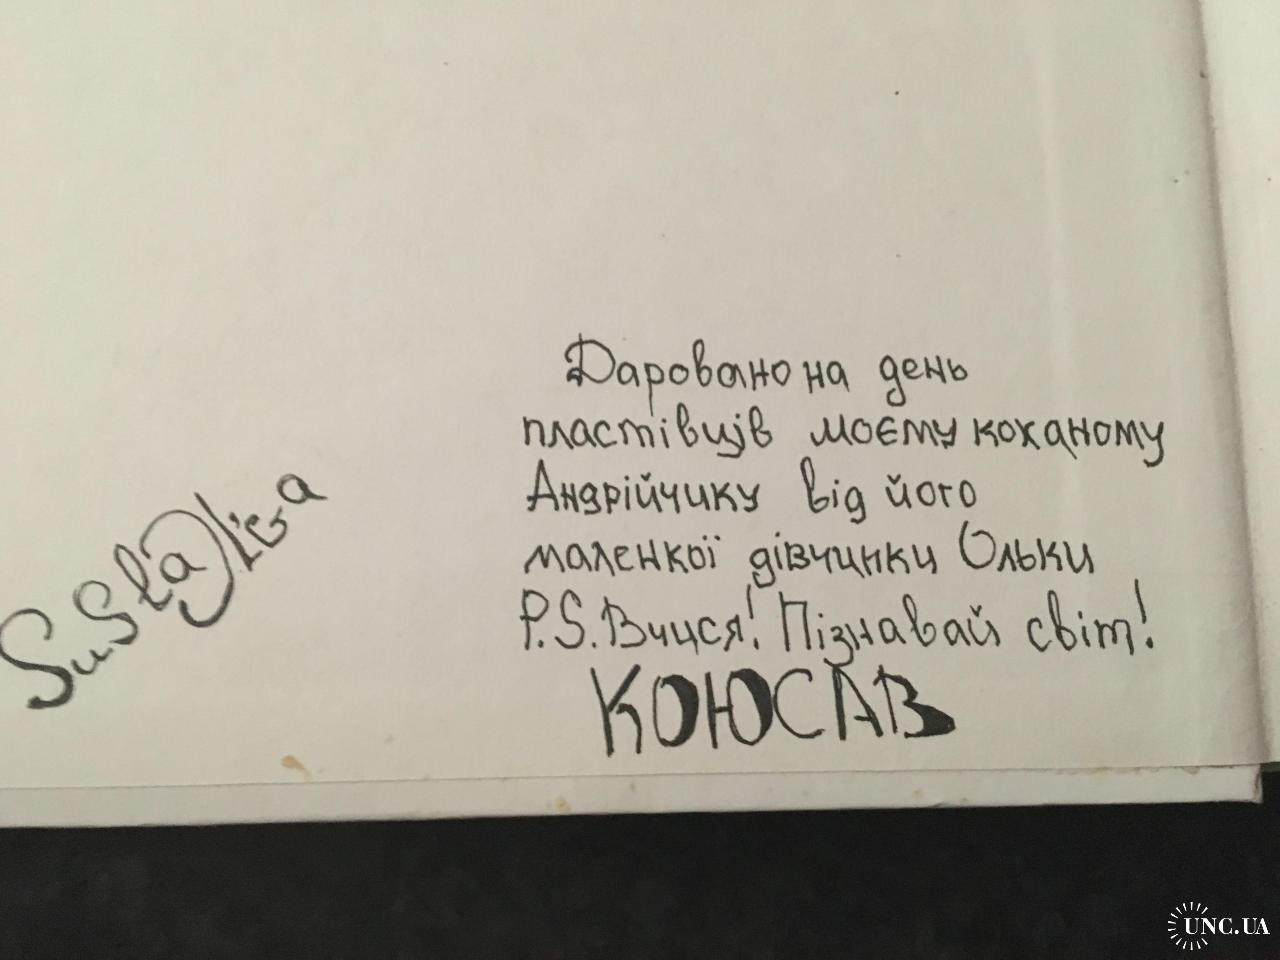 Даровано на день
пластівців моєму коханому
Андрійчику від його
маленкої дівчинки Ольки
P.S. Вчися! Пізнавай світ!
КОЮСАВ
UNC.UA